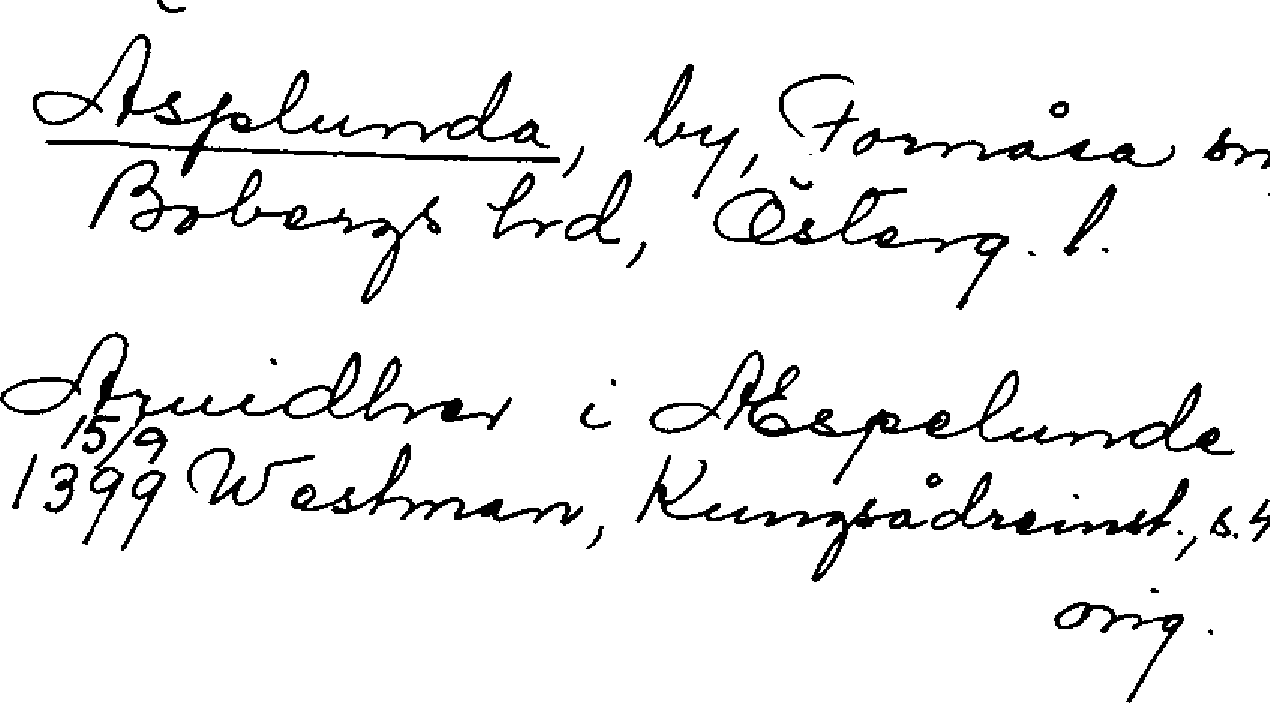 Äsplunda, by, Fornåsa sn
Bobergs hrd, Österg. l.
Aruidhrer i Æspelunde
15/9
1399 Westman, Kungsådreinst., s. 4
orig.